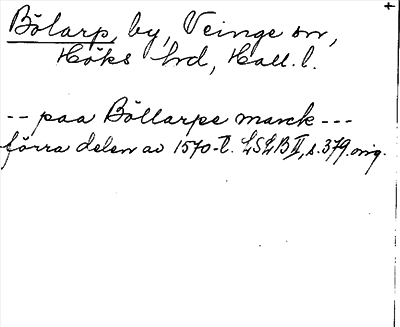 Bölarp, by, Veinge sn,
Höks hrd, Hall. l.
-- paa Böllarpe marck ---
förra delen av 1570-t. LSLB II, s. 379. orig.